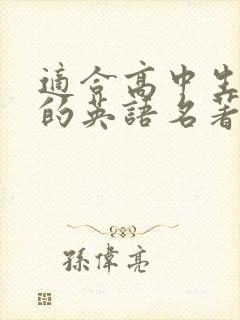 適合高中生
的英語名著
孫偉亮